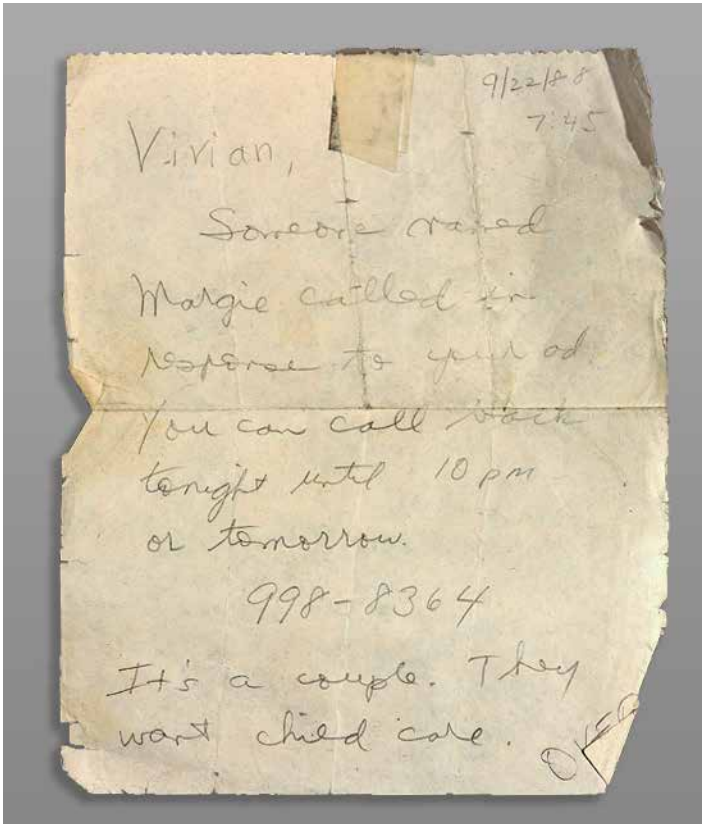 9/22/88
7:45
Vivian,
Someone named
Margie called in
response to your ad.
You can call back
tonight until 10 pm
or tomorrow.
998-8364
It's a couple. They
want child care.
OVER